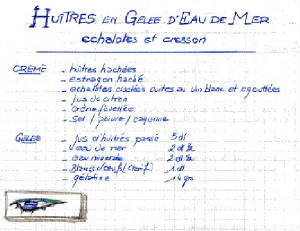 HUÎTRES EN GELEE D'EAU DE MER
echalotes et cresson
CREME - huîtres hachées
- estragon haché
- echalottes ciselées cuites au vin blanc et egouttées
- jus de citron
- crème fouettée
- sel / poivre / cayenne
GELEE - jus d'huîtres passé 5 dl
- eau de mer 2 dl
- eau minerale 2 dl
- Blancs d'oeuf (clarif.) 1 dl
- gélatine 14 grs